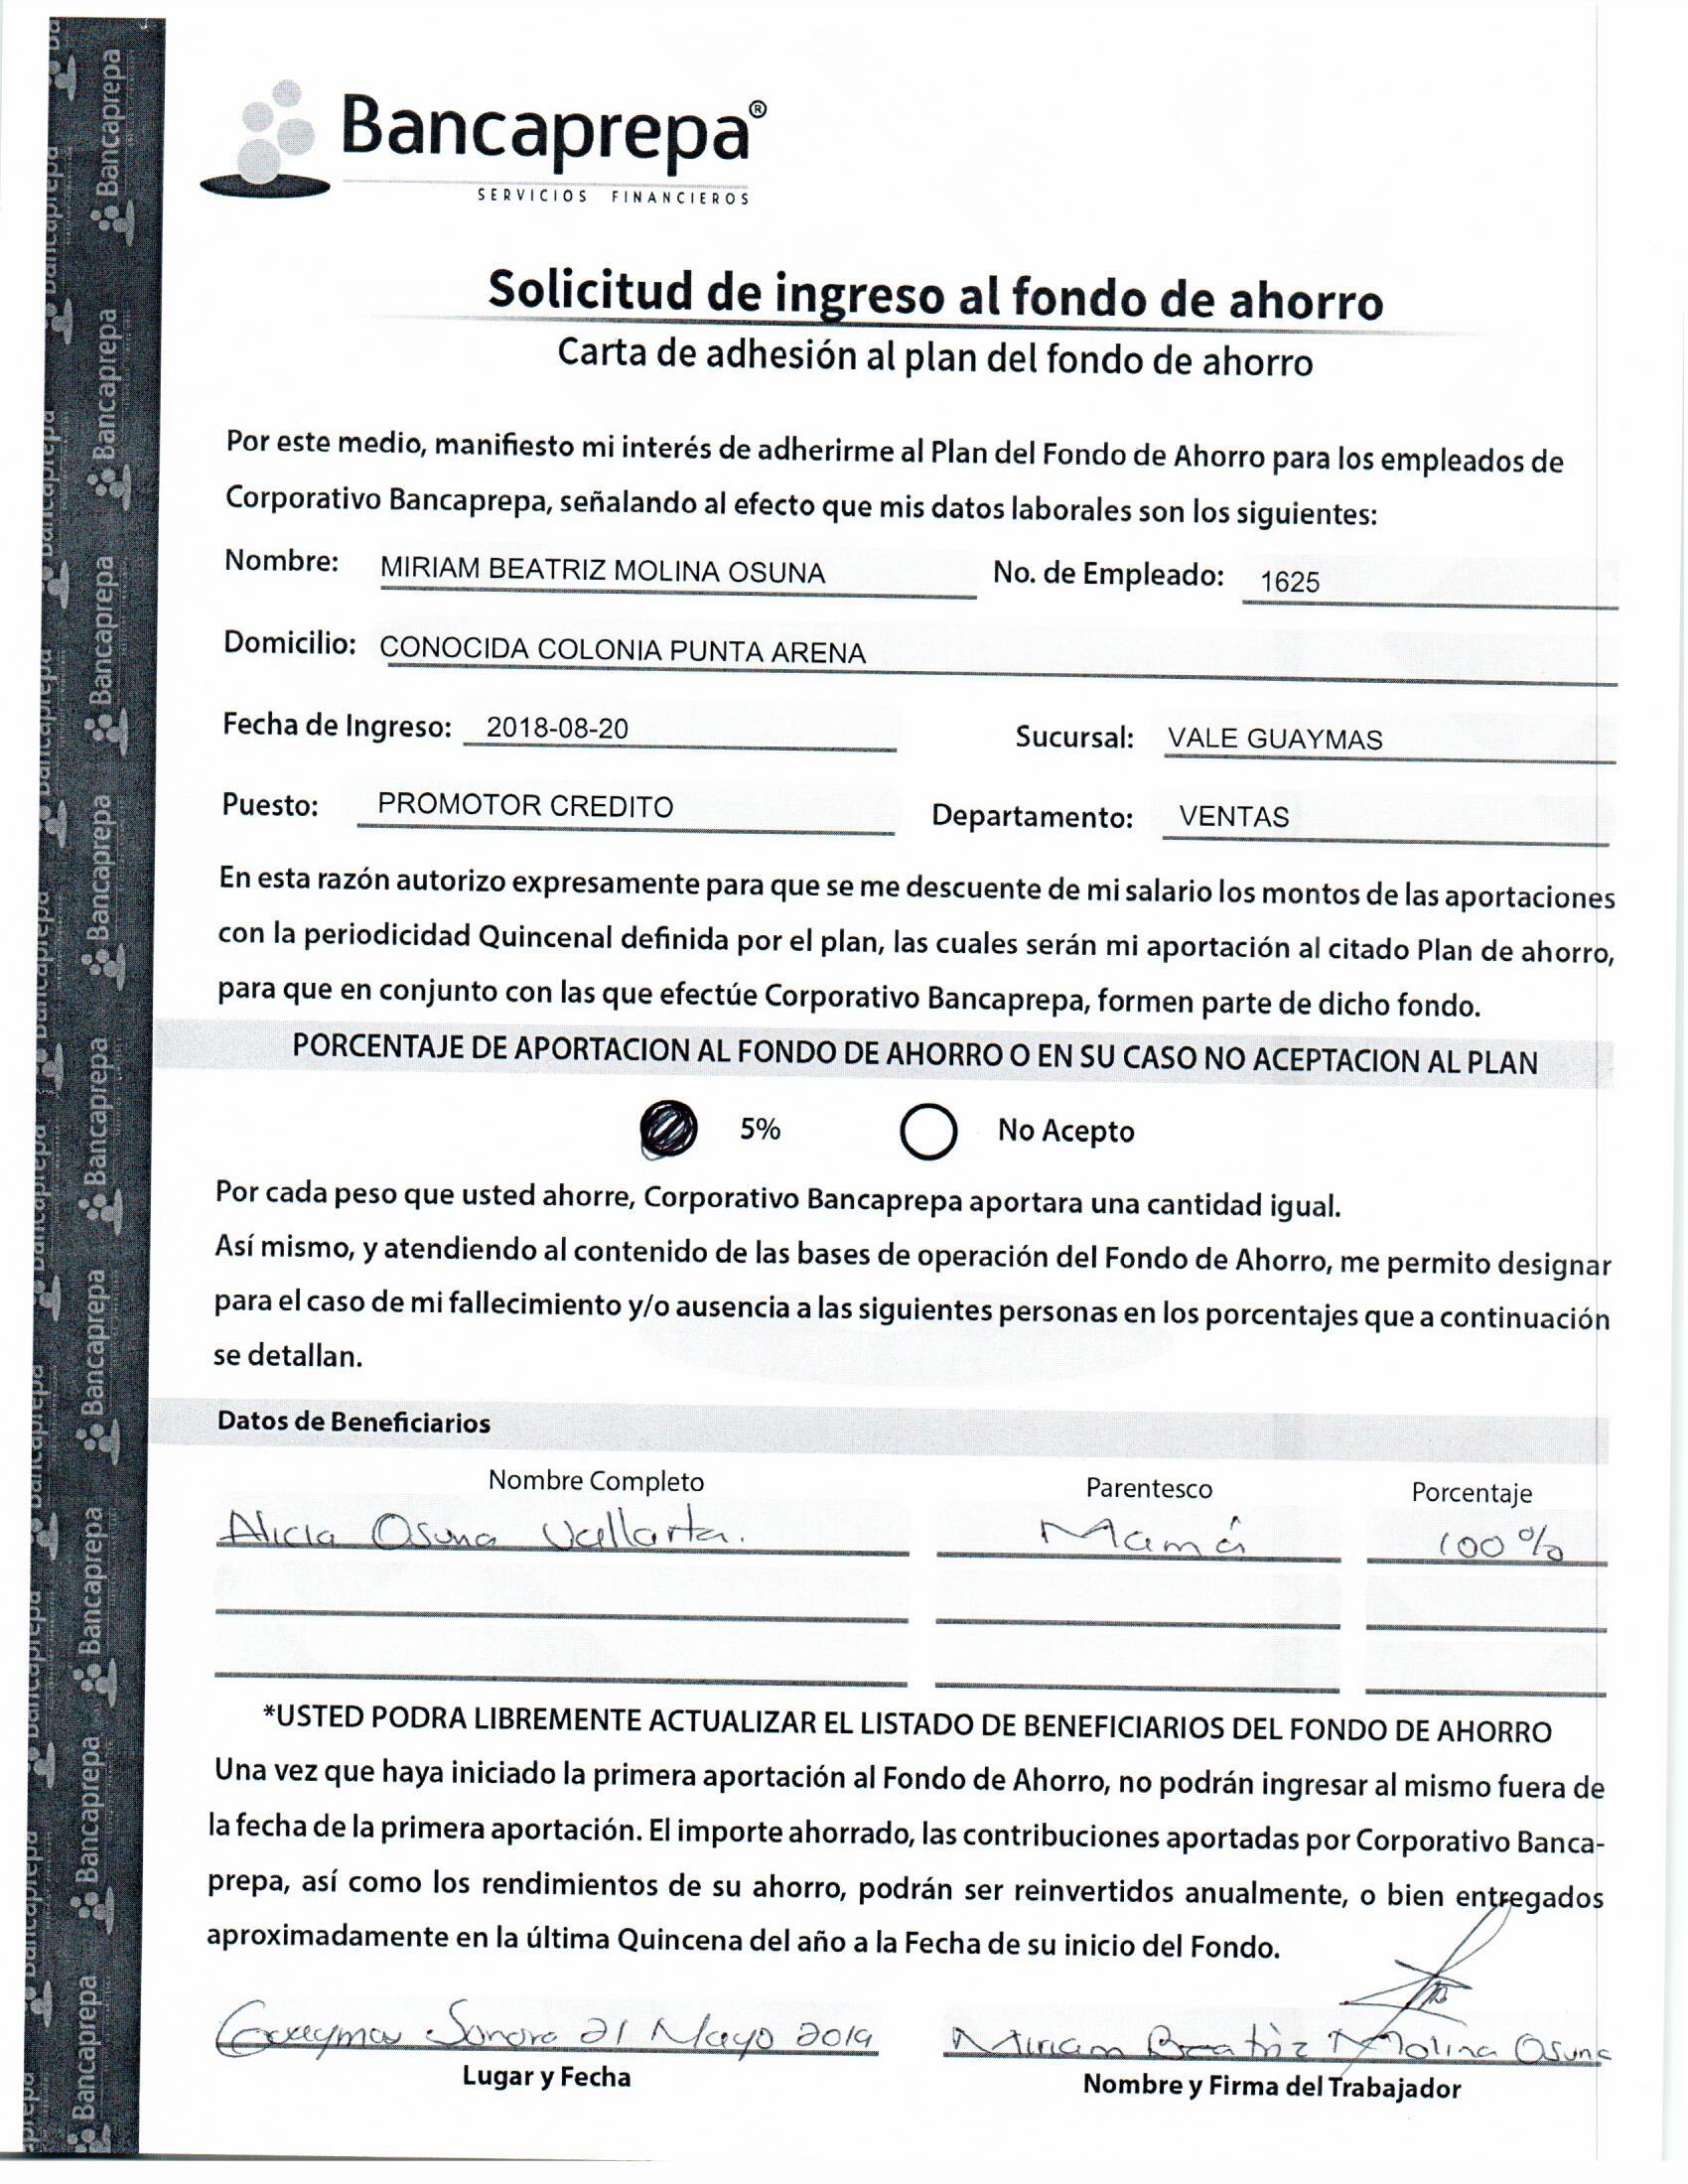 Bancaprepa®
SERVICIOS FINANCIEROS
Solicitud de ingreso al fondo de ahorro
Carta de adhesión al plan del fondo de ahorro
Por este medo, manifiesto mi interés de adherirme al Plan del Fondo de Ahorro para los empleados de
Corporativo Bancaprepa, señalando al efecto que mis datos laborales son los siguientes:
Nombre: MIRIAM BEATRIZ MOLINA OSUNA No. de Empleado: 1625
Domicilio: CONOCIDA COLONIA PUNTA ARENA
Fecha de Ingreso: 2018-08-20 Sucursal: VALE GUAYMAS
Puesto: PROMOTOR CREDITO Departamento: VENTAS
En esta razón autorizo expresamente para que se me descuente de mi salario los montos de las aportaciones
con la periodicidad Quincenal definida por el plan, las cuales serán mi aportación al citado Plan de ahorro,
para que en conjunto con las que efectúe Corporativo Bancaprepa, formen parte de dicho fondo.
PORCENTAJE DE APORTACION AL FONDO DE AHORRO O EN SU CASO NO ACEPTACION AL PLAN
5% No Acepto
Por cada peso que usted ahorre, Corporativo Bancaprepa aportara una cantidad igual.
Así mismo, y atendiendo al contenido de las bases de operación del Fondo de Ahorro, me permito designar
para el caso de mi fallecimiento y/o ausencia a las siguientes personas en los porcentajes que a continuación
se detallan.
Datos de Beneficiarios
Nombre Completo Parentesco Porcentaje
Alicia Osuna Vallarta. Mamá 100%
*USTED PODRA LIBREMENTE ACTUALIZAR EL LISTADO DE BENEFICIARIOS DEL FONDO DE AHORRO
Una vez que haya iniciado la primera aportación al Fondo de Ahorro, no podrán ingresar al mismo fuera de
la fecha de la primera aportación. El importe ahorrado, las contribuciones aportadas por Corporativo Banca-
prepa, así como los rendimientos de su ahorro, podrán ser reinvertidos anualmente, o bien entregados
aproximadamente en la última Quincena del año a la Fecha de su inicio del Fondo.
Guaymas Sonora 21 Mayo 2019 Miriam Beatriz Molina Osuna
Lugar y Fecha Nombre y Firma del Trabajador